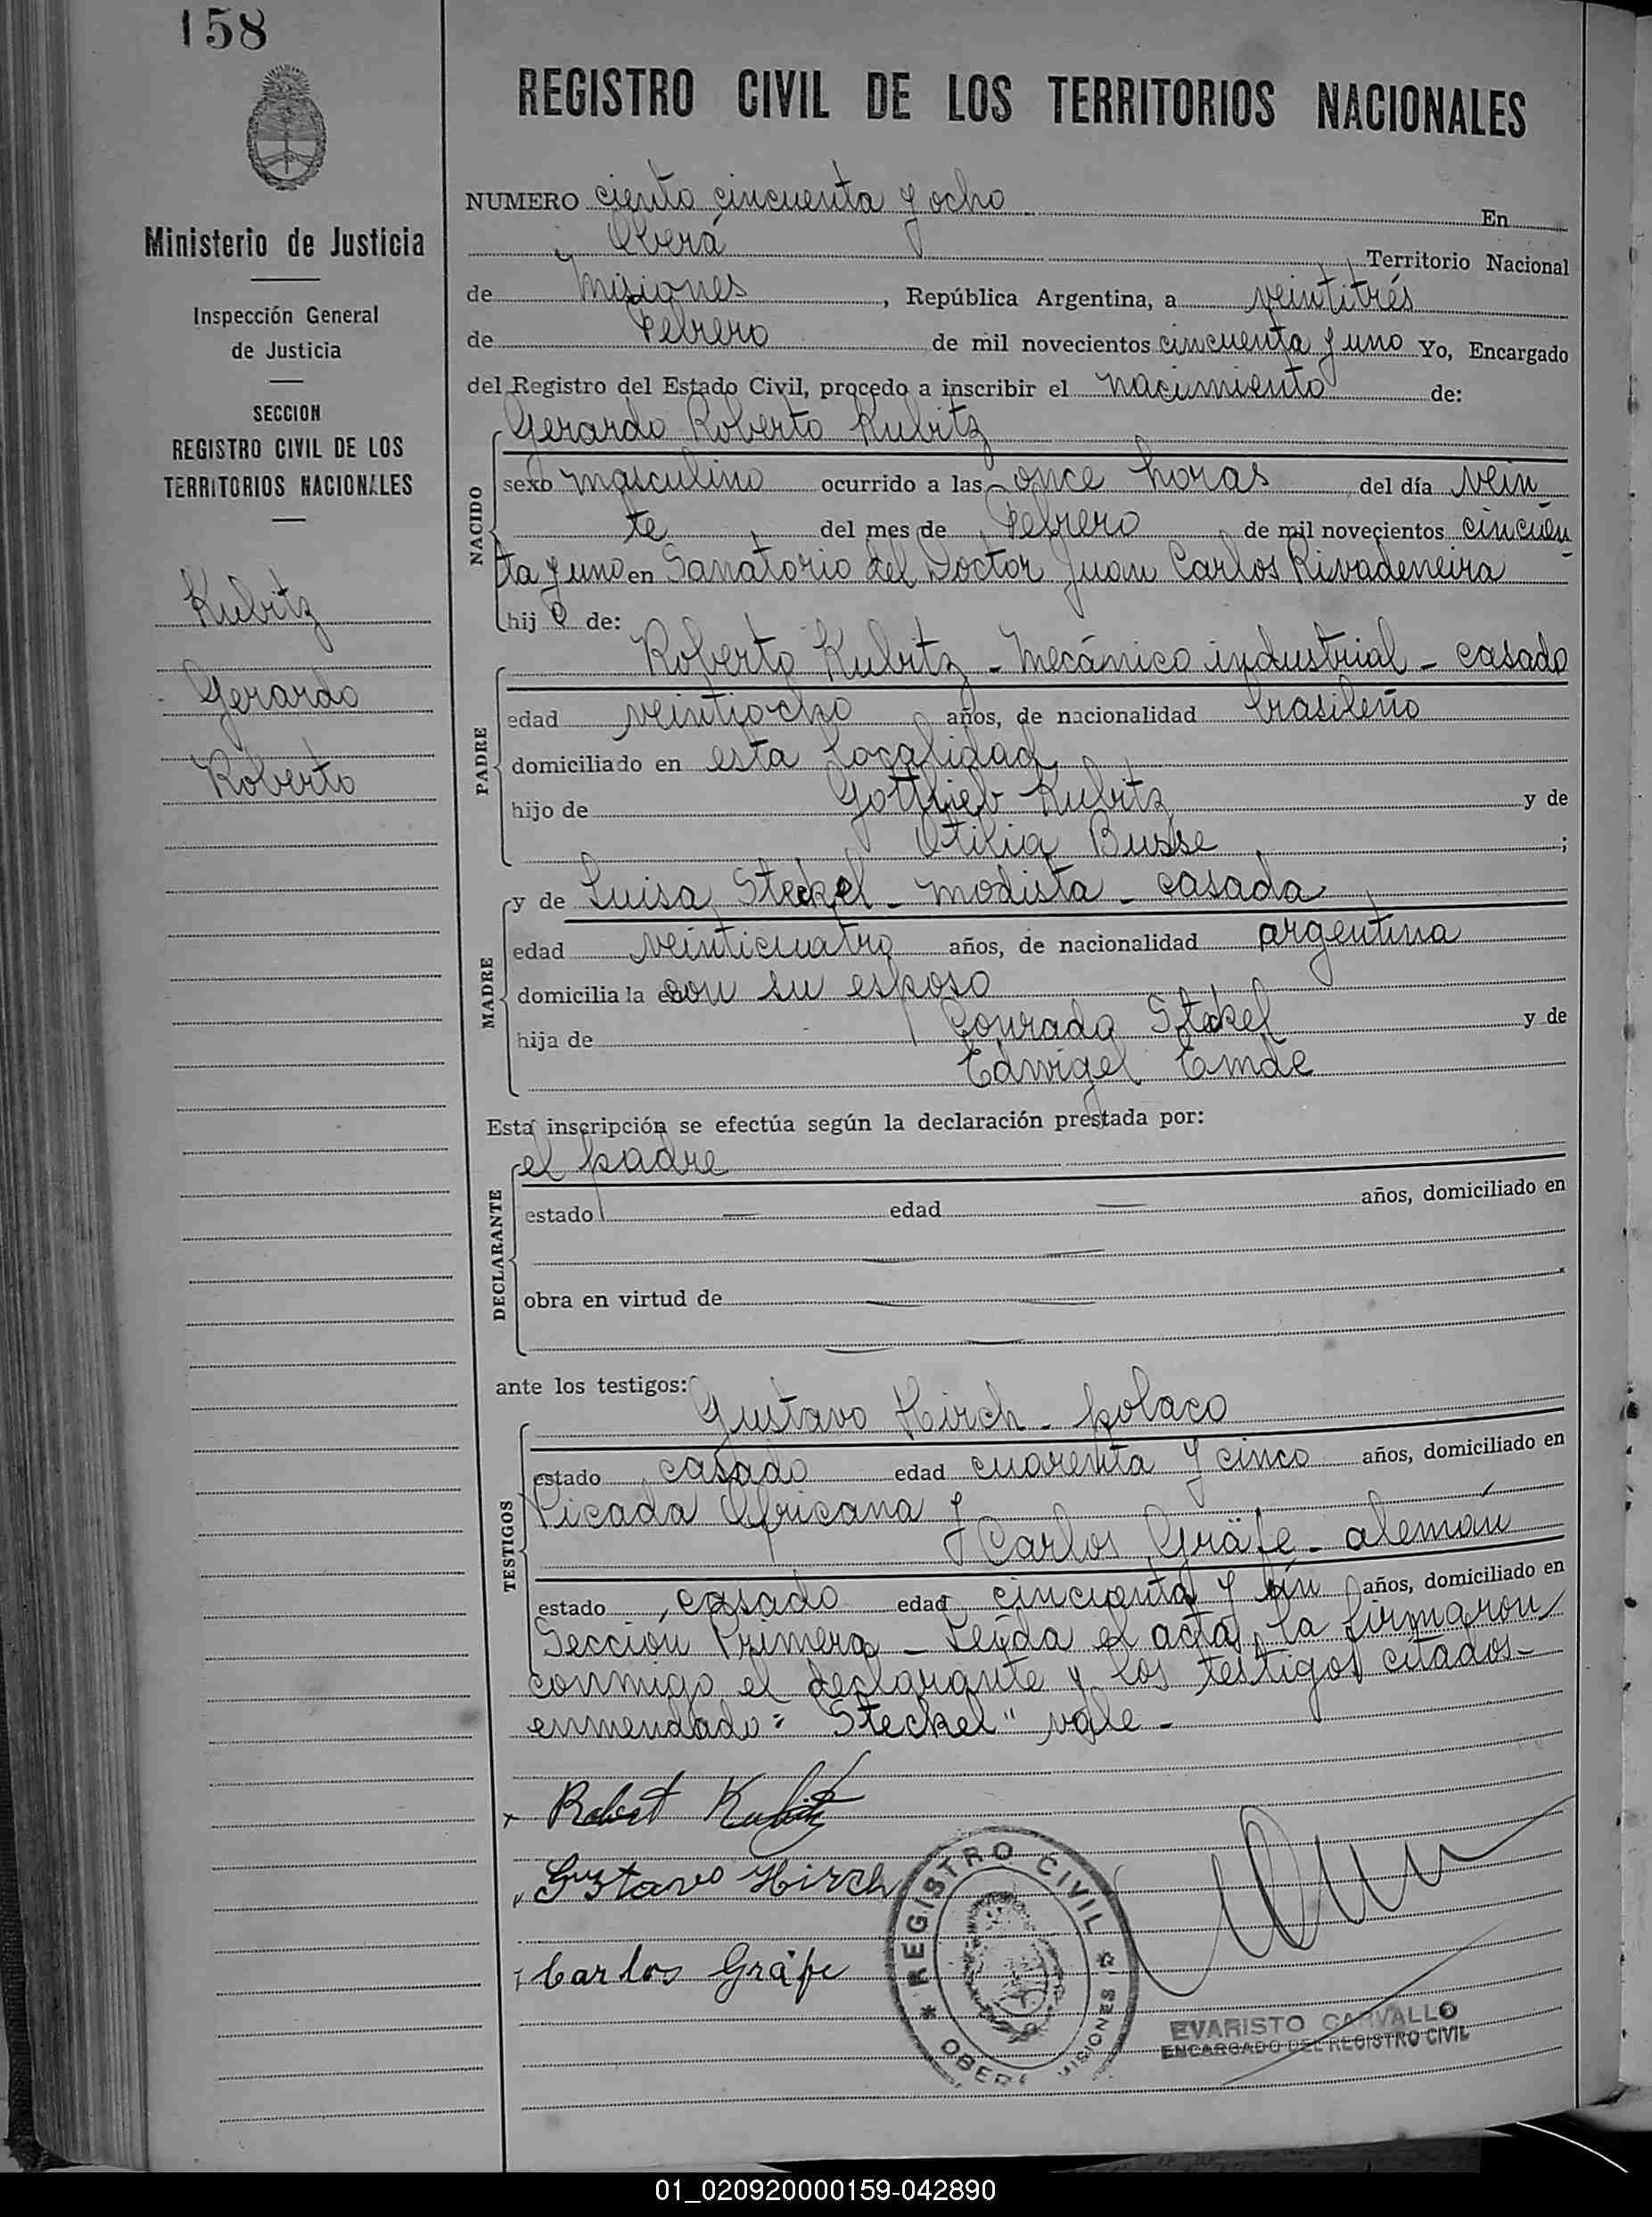 158
Ministerio de Justicia
Inspección General
de Justicia
SECCION
REGISTRO CIVIL DE LOS
TERRITORIOS NACIONALES
Kubitz
Gerardo
Roberto
REGISTRO CIVIL DE LOS TERRITORIOS NACIONALES
NUMERO ciento cincuenta y ocho En
Oberá Territorio Nacional
de Misiones, República Argentina, a veintitrés
de Febrero de mil novecientos cincuenta y uno Yo, Encargado
del Registro del Estado Civil, procedo a inscribir el nacimiento de:
Gerardo Roberto Kubitz
NACIDO
sexo masculino ocurrido a las once horas del día vein
te del mes de Febrero de mil novecientos cincuen
ta y uno en Sanatorio del Doctor Juan Carlos Rivadeneira
hijo de:
Roberto Kubitz - Mecánico industrial - casado
PADRE
edad veintiocho años, de nacionalidad brasileño
domiciliado en esta localidad
hijo de Gottlieb Kubitz y de
Otilia Busse ;
y de Luisa Steckel - modista - casada
MADRE
edad veinticuatro años, de nacionalidad argentina
domicilia la en con su esposo
hija de Conrado Steckel y de
Edwigel Emde
Esta inscripción se efectúa según la declaración prestada por:
el padre
DECLARANTE
estado — edad — años, domiciliado en
obra en virtud de
ante los testigos:
Gustavo Hirch - polaco
TESTIGOS
estado casado edad cuarenta y cinco años, domiciliado en
Picada Africana y
Carlos Gräfe - alemán
estado casado edad cincuenta y un años, domiciliado en
Sección Primera - Leída el acta, la firmaron
conmigo el declarante y los testigos citados -
enmendado: "Steckel" vale -
Robert Kubitz
Gustavo Hirch
Carlos Gräfe
REGISTRO CIVIL
OBERA MISIONES
EVARISTO CARVALLO
ENCARGADO DEL REGISTRO CIVIL
01_020920000159-042890